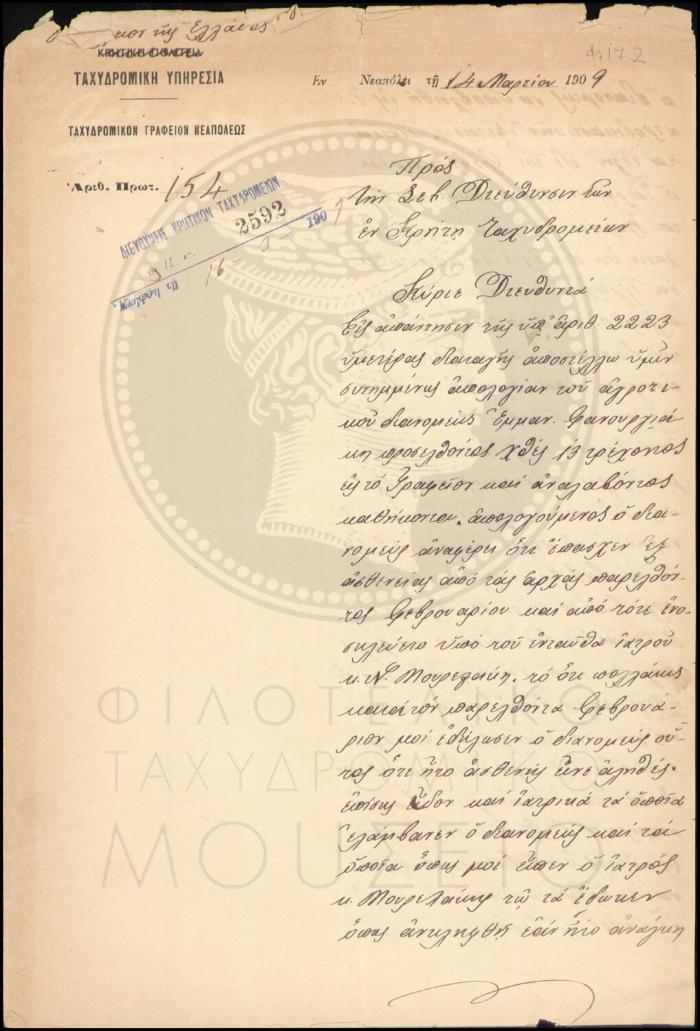 κον τῆς Ἑλλάδος
ΚΡΗΤΙΚΗ ΠΟΛΙΤΕΙΑ
ΤΑΧΥΔΡΟΜΙΚΗ ΥΠΗΡΕΣΙΑ
ΤΑΧΥΔΡΟΜΙΚΟΝ ΓΡΑΦΕΙΟΝ ΝΕΑΠΟΛΕΩΣ
Φ.172
Ἐν Νεαπόλει τῇ 14 Μαρτίου 1909
Ἀριθ. Πρωτ. 154
ΔΙΕΥΘΥΝΣΙΣ ΚΡΗΤΙΚΩΝ ΤΑΧΥΔΡΟΜΕΙΩΝ
2592 190
16
Πρός
τὴν Σεβ. Διεύθυνσιν τῶν
ἐν Κρήτῃ Ταχυδρομείων
Κύριε Διευθυντά
Εἰς ἀπάντησιν τῆς ὑπ' ἀριθ. 2223
ὑμετέρας διαταγῆς ἀποστέλλω ὑμῖν
συνημμένως ἀπολογίαν τοῦ ἀγροτι-
κοῦ διανομέως Ἐμμαν. Φανουργιά-
κη προσελθόντος χθὲς 13 τρέχοντος
εἰς τὸ Γραφεῖον καὶ ἀναλαβόντος
καθήκοντα. ἀπολογούμενος ὁ δια-
νομεὺς ἀναφέρει ὅτι ἔπασχεν ἐξ
ἀσθενείας ἀπὸ τὰς ἀρχὰς παρελθόν-
τος Φεβρουαρίου καὶ ἀπὸ τότε ἐνο-
σηλεύετο ὑπὸ τοῦ ἐνταῦθα ἰατροῦ
κ. Ν. Μουρελάκη. τὸ ὅτι πολλάκις
κατὰ τὸν παρελθόντα Φεβρουά-
ριον μοὶ ἐδήλωσεν ὁ διανομεὺς οὗ-
τος ὅτι ἦτο ἀσθενὴς εἶνε ἀληθές.
ἐπίσης εἶδον καὶ ἰατρικὰ τὰ ὁποῖα
ἐλάμβανεν ὁ διανομεὺς καὶ τὰ
ὁποῖα ὅπως μοὶ εἶπεν ὁ ἰατρὸς
κ. Μουρελάκης τῷ τὰ ἔδωκεν
ὅπως ἀντιληφθῇ ἐὰν ἦτο ἀνάγκη
ΦΙΛΟΤΕΛΙΚΟ
ΤΑΧΥΔΡΟΜΙΚΟ
ΜΟΥΣΕΙΟ